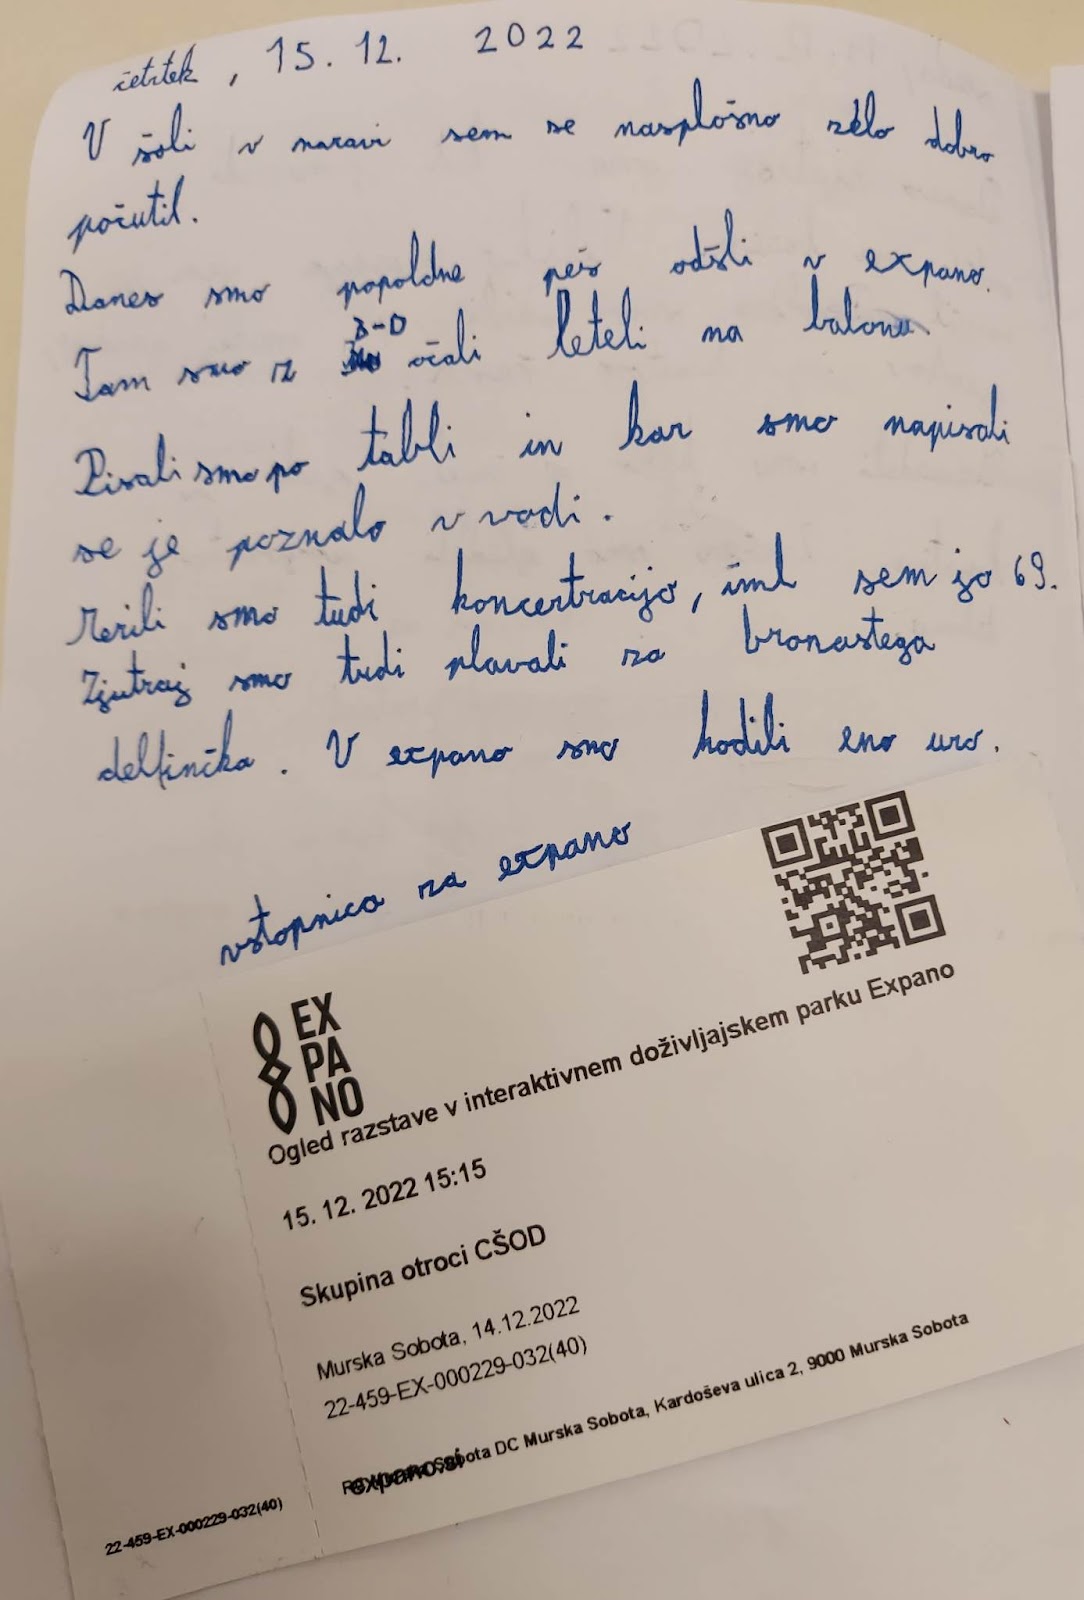 četrtek, 15. 12. 2022
V šoli v naravi sem se nasplošno zelo dobro
počutil.
Danes smo popoldne peš odšli v expano.
Tam smo iz 3-D očali leteli na balonu
Pisali smo po tabli in kar smo napisali
se je poznalo v vodi.
Merili smo tudi koncertracijo, iml sem jo 69.
Zjutraj smo tudi plavali za bronastega
delfinčka. V expano smo hodili eno uro.
vstopnica za expano
EX
PA
NO
Ogled razstave v interaktivnem doživljajskem parku Expano
15. 12. 2022 15:15
Skupina otroci CŠOD
Murska Sobota, 14.12.2022
22-459-EX-000229-032(40)
Sobota DC Murska Sobota, Kardoševa ulica 2, 9000 Murska Sobota
expano.si
22-459-EX-000229-032(40)